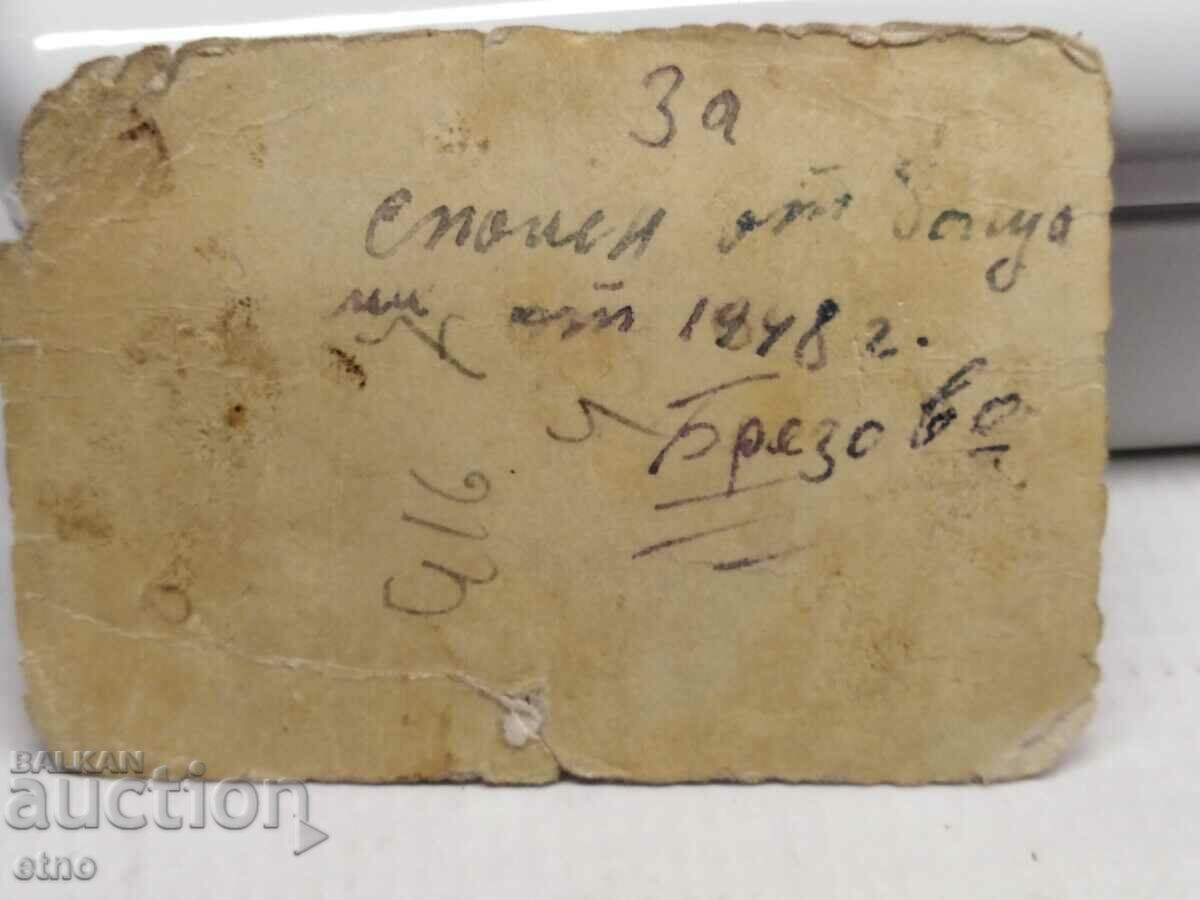 За
спомен от
ми от 1948 г.
Брязово
416
BALKAN
auction
etno